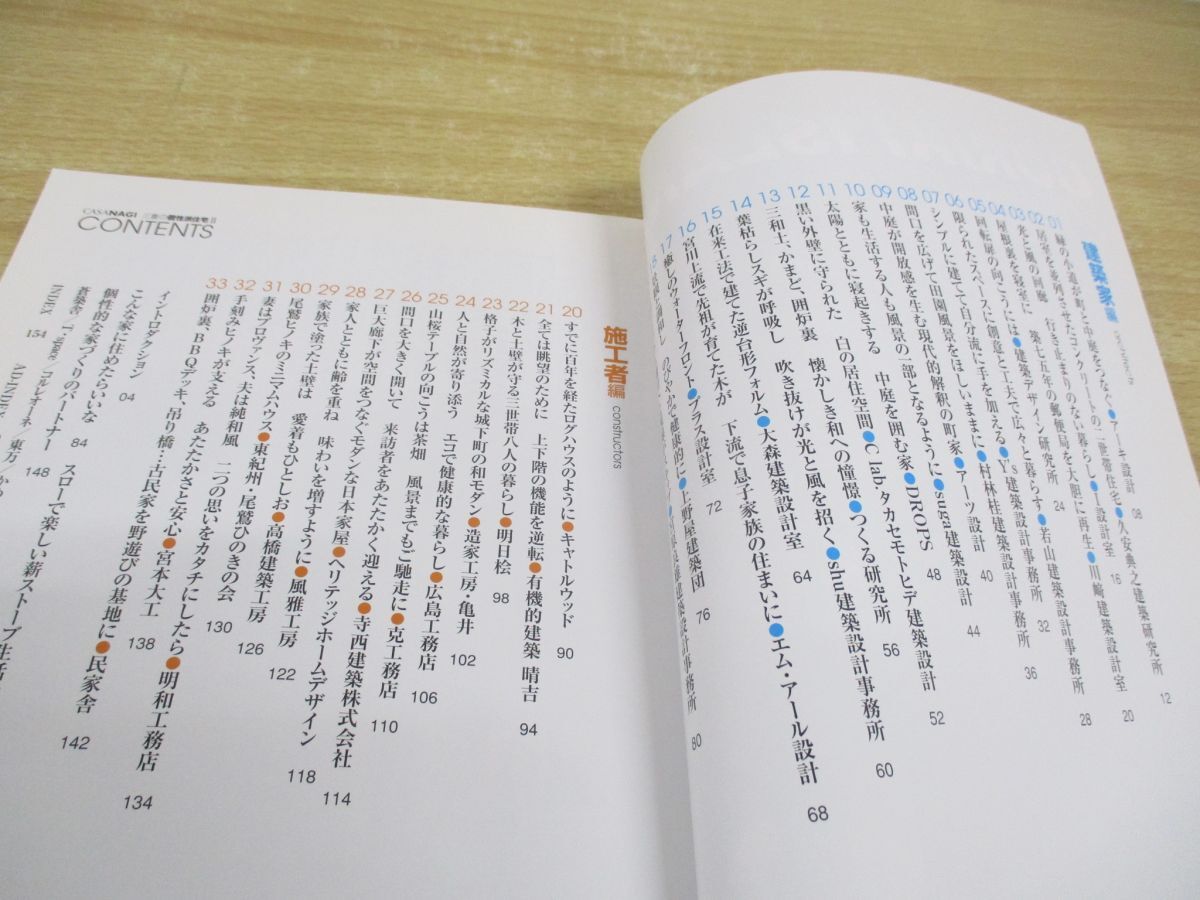 建築家編
01 緑の小道が町と中庭をつなぐ●アーキ設計 08
02 居室を並列させたコンクリートの二世帯住宅●久安典之建築研究所 12
03 光と風の回廊 行き止まりのない暮らし●I設計室 16
04 屋根裏を寝室に 築七五年の郵便局を大胆に再生●川崎建築設計室 20
05 回転扉の向こうには●建築デザイン研究所 24
06 限られたスペースに創意と工夫で広々と暮らす●若山建築設計事務所 28
07 シンプルに建てて自分流に手を加える●Y's建築設計事務所 32
08 間口を広げて田園風景をほしいままに●村林桂建築設計事務所 36
09 中庭が開放感を生む現代的解釈の町家●アーツ設計 40
10 家も生活する人も風景の一部となるように●suga建築設計 44
11 太陽とともに寝起きする 中庭を囲む家●DROPS 48
12 黒い外壁に守られた 白の居住空間●C lab.タカセモトヒデ建築設計 52
13 三和土、かまど、囲炉裏 懐かしき和への憧憬●つくる研究所 56
14 葉枯らしスギが呼吸し 吹き抜けが光と風を招く●shu建築設計事務所 60
15 在来工法で建てた逆台形フォルム●大森建築設計室 64
16 宮川上流で先祖が育てた木が 下流で息子家族の住まいに●エム・アール設計 68
17 癒しのウォーターフロント●プラス設計室 72
のびやかに健康的に●上野屋建築団 76
建築設計事務所 80
CASANAGI 三重の個性派住宅 II
CONTENTS
施工者編 constructors
20 すでに百年を経たログハウスのように●キャトルウッド 90
21 全ては眺望のために 上下階の機能を逆転●有機的建築 晴吉 94
22 木と土壁が守る三世帯八人の暮らし●明日桧 98
23 格子がリズミカルな城下町の和モダン●造家工房・亀井 102
24 人と自然が寄り添う エコで健康的な暮らし●広島工務店 106
25 山桜テーブルの向こうは茶畑 風景までもご馳走に●克工務店 110
26 間口を大きく開いて 来訪者をあたたかく迎える●寺西建築株式会社 114
27 巨大廊下が空間をつなぐモダンな日本家屋●ヘリテッジホームデザイン 118
28 家人とともに齢を重ね 味わいを増すように●風雅工房 122
29 家族で塗った土壁は 愛着もひとしお●高橋建築工房 126
30 尾鷲ヒノキのミニマムハウス●東紀州・尾鷲ひのきの会 130
31 妻はプロヴァンス、夫は純和風 二つの思いをカタチにしたら●明和工務店 134
32 手刻みヒノキが支える あたたかさと安心●宮本大工 138
33 囲炉裏、BBQデッキ、吊り橋…古民家を野遊びの基地に●民家舎 142
イントロダクション 04
こんな家に住めたらいいな 84
個性的な家づくりのパートナー 148 スローで楽しい薪ストーブ生活
INDEX 154